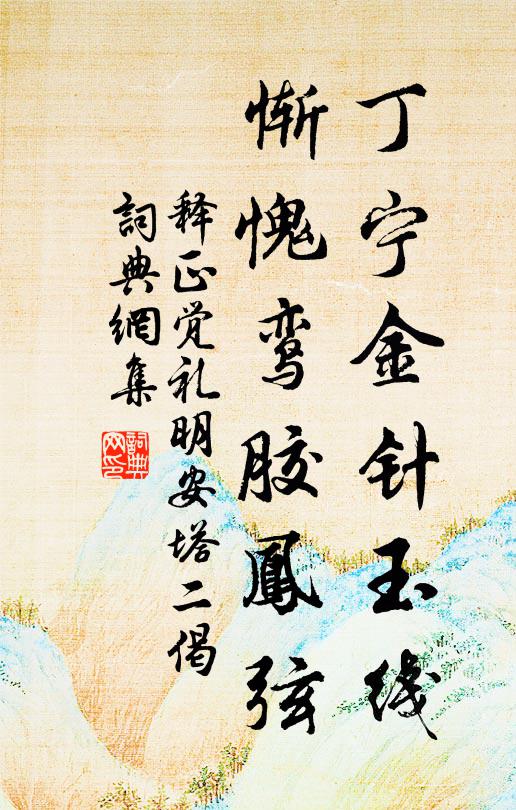 丁宁金针玉线
惭愧鸾胶鳳弦
释正觉礼明安塔二偈
詞典網集
詞典網印